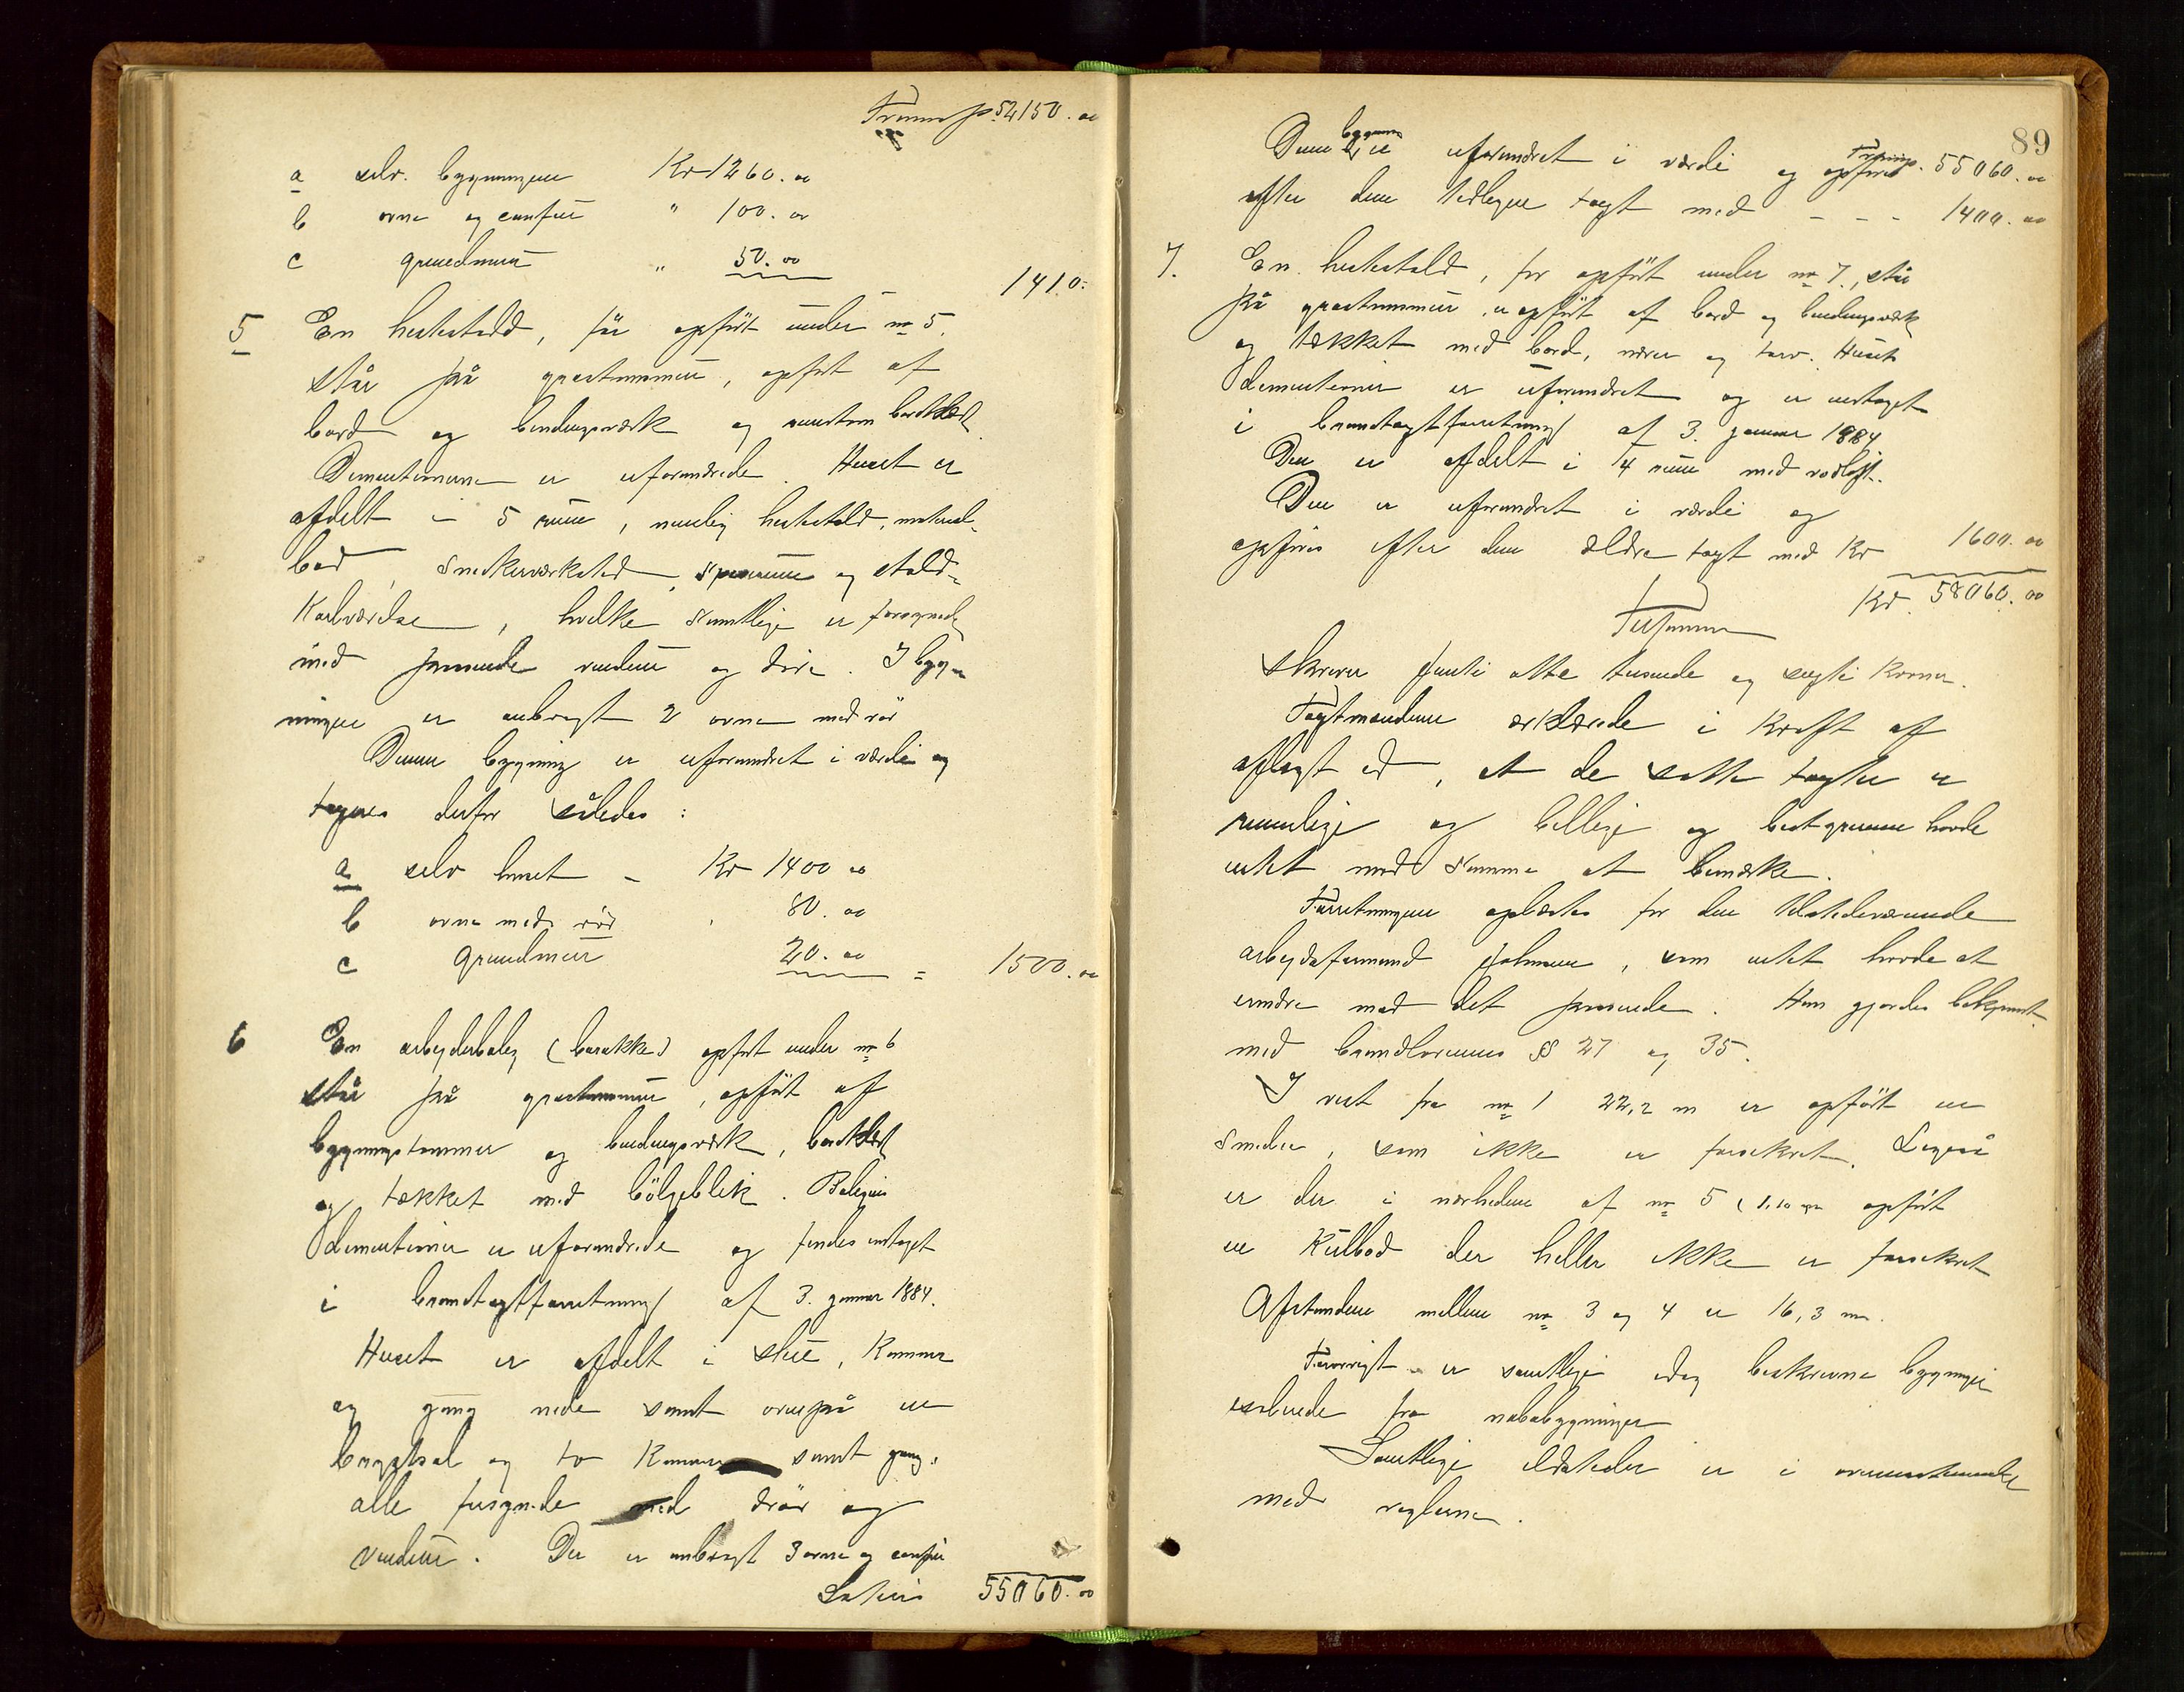 Transp. 52150.00
a selv. bygningen Kr 1260.00
b ovne og comfur " 100.00
c grundmur " 50.00
1410.
5 En hestestald, før opført under no 5.
står på gråstensmur, opført af
bord og bindingsværk og bordklædt
Dimentionerne er uforandrede. Huset er
afdelt i 5 rum, nemlig hestestald, material-
bod, Snekerværksted, og stald-
Karlværelse, hvilke samtlige er forsynede
med passende vinduer og døre. I byg-
ningen er anbragt 2 ovne med rør
Denne bygning er uforandret i værdi og
taxeres derfor således:
a selv huset - Kr 1400 00
b ovne med rør " 80.00
c grundmur 20.00 = 1500.00
6 En arbeiderbolig (barakke) opført under no 6
står på gråstensmur, opført af
bygningstømmer og bindingsværk, bordklædt
og tækket med bølgeblik. Boligens
dimentioner er uforandrede og findes inntaget
i brandtagtforretning af 3. januar 1884.
Huset er afdelt i stue, Kammer
og gang nede samt ovenpå en
brygsal og to Kammer samt gang,
alle forsynede med dører og
vinduer. Der er anbragt 3 ovne og comfur
Latus 55060.00
89
Transp. 55060.00
Denne bygning er uforandret i værdi og opføres
efter den tidligere tagt med - - - 1400.00
7. En hestestald, før opført under no 7, står
på gråstensmur, er opført af bord og bindingsværk
og tækket med bord, næver og torv. Husets
dimentioner er uforandret og er inntaget
i brandtagtforretning af 3. januar 1884
Den er afdelt i 4 rum med rodloft.
Den er uforandret i værdi og
opføres efter den ældre tagt med Kr 1600.00
Tilsammen Kr. 58060.00
skriver femti otte tusende og sexti Kroner.
Tagtmændene erklærede i Kraft af
aflagt ed, at de satte tagter er
rimelige og billige og bestyrerne havde
intet mod Samme at bemærke.
Forretningen oplæstes for den tilstedeværende
arbeidsformand Johansen, som intet havde at
erindre mod det passerede. Han gjordes bekjendt
med brandlovenes §§ 27 og 35.
I vest fra no 1 22,2 m er opført en
Smedie, som ikke er forsikret. Ligeså
er der i nærheden af no 5 opført
en Kulbod der heller ikke er forsikret
Afstanden mellem no 3 og 4 er 16,3 m.
Forøvrigt er samtlige idag beskrevne bygninger
isolerede fra nabobygninger
Samtlige ildsteder er i overensstemmelse
med reglerne.